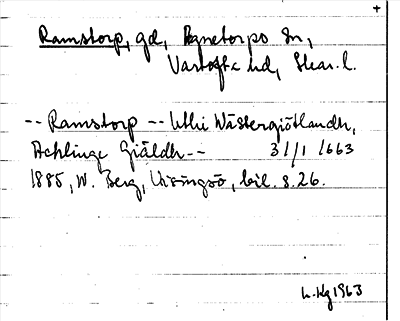 +
Ramstorp, gd, Agnetorps sn,
Vartofta hd, Skar. l.
-- Ramstorp -- uthi Wästergiötlandh,
Achlinge Giäldh -- 31/1 1663
1885, W. Berg, Visingsö, bil. s. 26.
1963